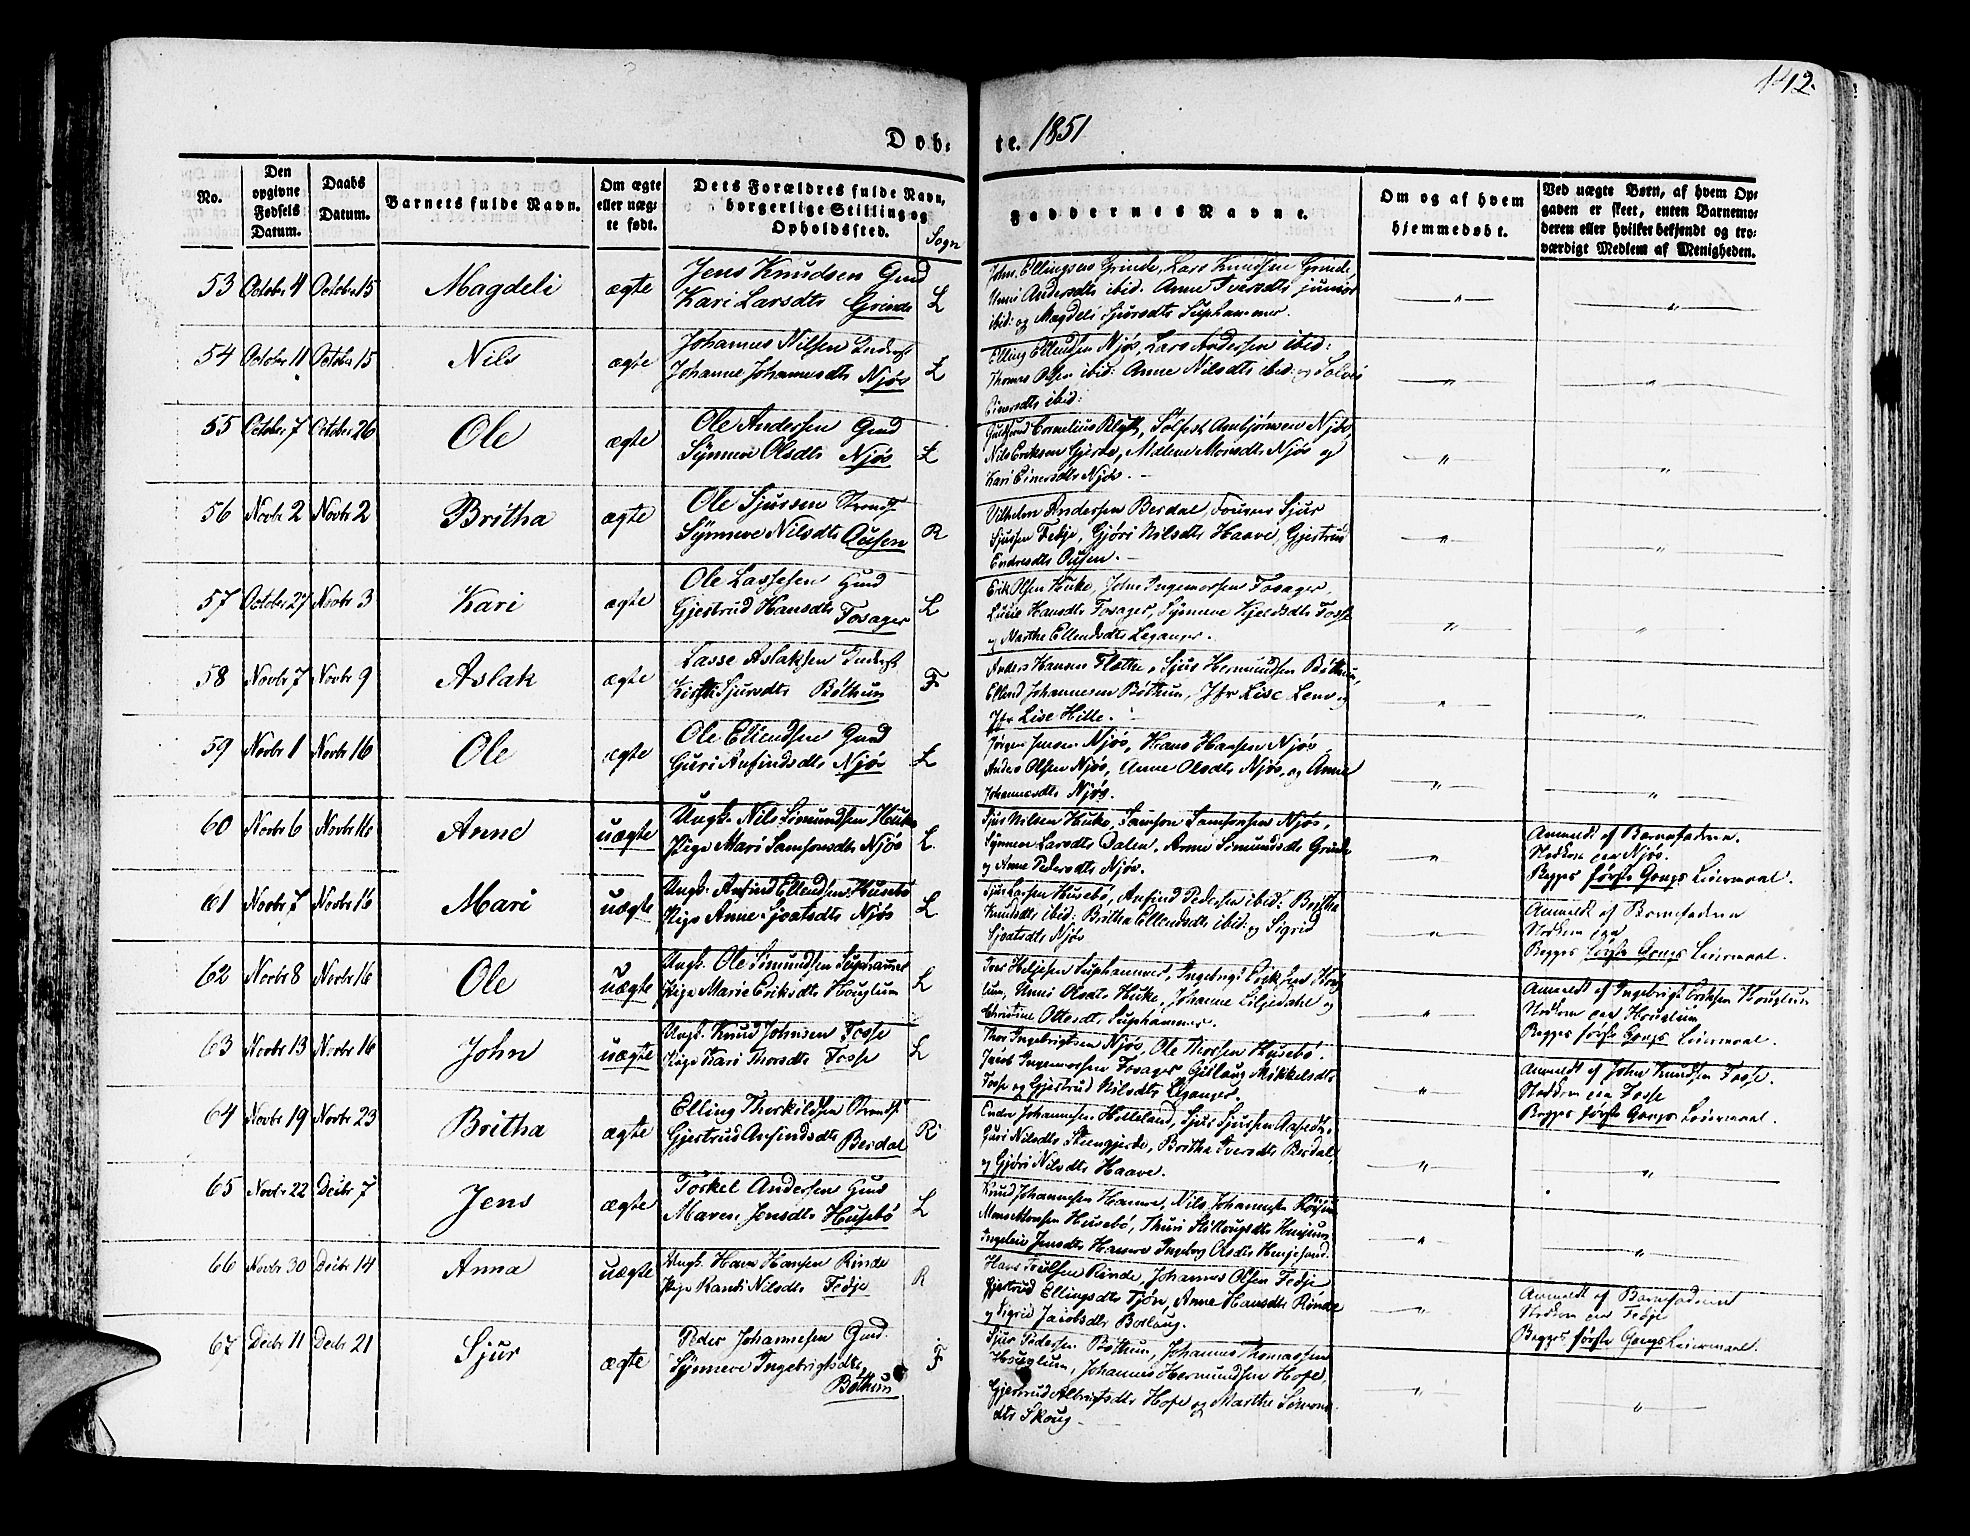 142.
Døb=
te. 1851
No.
Den
opgivne
Fødsels
Datum.
Daabs
Datum.
Barnets fulde Navn.
Om ægte
eller uæg-
te født.
Dets Forældres fulde Navn,
borgerlige Stilling og
Opholdssted.
Sogn
Faddernes Navne.
Om og af hvem
hjemmedøbt.
Ved uægte Børn, af hvem Op-
gaven er skeet, enten Barnemo-
deren eller hvilket bekjendt og tro-
værdigt Medlem af Menigheden.
53 Octobr 4 Octobr 15 Magdeli ægte
Jens Knudsen Gmd
Kari Larsdtr Grinde L
John Ellingsen Grinde, Lars Knudsen Grinde,
Unni Andersdtr ibid: Anne Iversdtr junior
ibid: og Magdeli Sjursdtr Suphammer.
54 Octobr 11 Octobr 15 Nils ægte
Johannes Nilsen Inderst
Johanne Johannesdtr Njøs L
Elling Ellendsen Njøs, Lars Andersen ibid:
Thomas Olsen ibid: Anne Nilsdtr ibid: og Solvei
Einersdtr ibid:
55 October 7 October 26 Ole ægte
Ole Andersen Gmd
Synneve Olsdtr Njøs L
Cornelius Blyt, Solfest Ambjørnsen Njøs,
Nils Eriksen Gjerde, Malene Monsdtr Njøs og
Kari Einersdtr Njøs. -
56 Novbr 2 Novbr 2 Britha ægte
Ole Sjursen Strands
Synneve Nilsdtr Ousen R
Vilhelm Andersen Berdal, Sjur
Sjursen Fedje, Gjøri Nilsdtr Haave, Gjertrud
Endresdtr Ousen. -
57 October 27 Novbr 3 Kari ægte
Ole Lassesen Gmd
Gjertrud Hansdtr Fosager L
Erik Olsen Huke, John Ingemorsen Fosager,
Hansdtr Fosager, Synneve Kjeldsdtr Fosse
og Marthe Ellendsdtr Leganger.
58 Novbr 7 Novbr 9 Aslak ægte
Lasse Aslaksen Inderst
Kirsti Sjursdtr Bøthun F
Anders Hansen Flethe, Sjur Hermundsen Bøthun,
Ellend Johannesen Bøthun, Jfr Lise Lem og
Jfr Lise Hille.
59 Novbr 1 Novbr 16 Ole ægte
Ole Ellendsen Gmd
Guri Anfindsdtr Njøs L
Jørgen Jensen Njøs, Hans Hansen Njøs,
Anders Olsen Njøs, Anne Olsdtr Njøs, og Anne
Johannesdtr Njøs.
60 Novbr 6 Novbr 16 Anne uægte
Ungk. Nils Simundsen Huke
Pige Mari Samsonsdtr Njøs L
Sjur Nilsen Huke, Samson Samsonsen Njøs,
Synneve Larsdtr Dalen, Anne Simundsdtr Grinde
og Anne Pedersdtr Njøs.
Anmeldt af Barnefaderen.
Njøs.
Begges første Gangs Leiermaal.
61 Novbr 7 Novbr 16 Mari uægte
Ungk: Anfind Ellendsen Husebø
Pige Anne Sjvatsdtr Njøs L
Sjur Larsen Husebø, Anfind Pedersen ibid: Britha
Knudsdtr ibid: Britha Ellendsdtr ibid: og Sigrid
Sjvatsdtr Njøs
Anmeldt af Barnefaderen
Begges første Gangs Leiermaal.
62 Novbr 8 Novbr 16 Ole uægte
Ungk. Ole Simundsen Suphammer
Pige Marie Eriksdtr Houglum L
Iver Heljesen Suphammer, Ingebrigt Eriksen Houg-
lum, Unni Olsdtr Huke, Johanne Liljedahl og
Christine Ottesdtr Suphammer.
Anmeldt af Ingebrigt Eriksen Houglum
Houglum
Begges første Gangs Leiermaal.
63 Novbr 13 Novbr 16 John uægte
Ungk. Knud Johnsen Fosse
Pige Kari Thorsdtr Fosse L
Thor Ingebrigtsen Njøs, Ole Thorsen Husebø.
Jacob Ingemorsen Fosager Gullaug Mikkelsdtr
Fosse og Gjertrud Nilsdtr Leganger.
Anmeldt af John Knudsen Fosse.
Fosse
Begges første Gangs Leiermaal.
64 Novbr 19 Novbr 23 Britha ægte
Elling Therkildsen Strands
Gjertrud Anfindsdtr Berdal R
Endre Johannesen Helleland, Sjur Sjursen Aasedt,
Guri Nilsdtr Steengjerde, Britha Iversdtr Berdal,
og Gjøri Nilsdtr Haave.
65 Novbr 22 Decbr 7 Jens ægte
Torkel Andersen Gmd
Maren Jensdtr Husebø L
Knud Johannesen Hamre, Nils Johannesen
Mons Monsen Husebø, Thuri
Ingeleiv Jensdtr Hamre Ingeborg Olsdtr Henjesand.
66 Novbr 30 Decbr 14 Anna uægte
Ungk. Hans Hansen Rinde
Pige Randi Nilsdtr Fedje R
Hans Rinde, Johannes Olsen Fedje
Gjertrud Ellingsdtr Tjøn, Anne Hansdtr Rinde
og Sigrid Jacobsdtr Borlaug.
Anmeldt af Barnefaderen
Fedje
Begges første Gangs Leiermaal.
67 Decbr 11 Decbr 21 Sjur ægte
Peder Johannesen Gmd.
Synneve Ingebrigtsdtr
Bøthun F
Sjur Pedersen Bøthun, Johannes Thomassen
Houglum, Johannes Hermundsen Hope,
Gjertrud Albrigtsdtr Hope og Marthe Simons
dtr Skoug